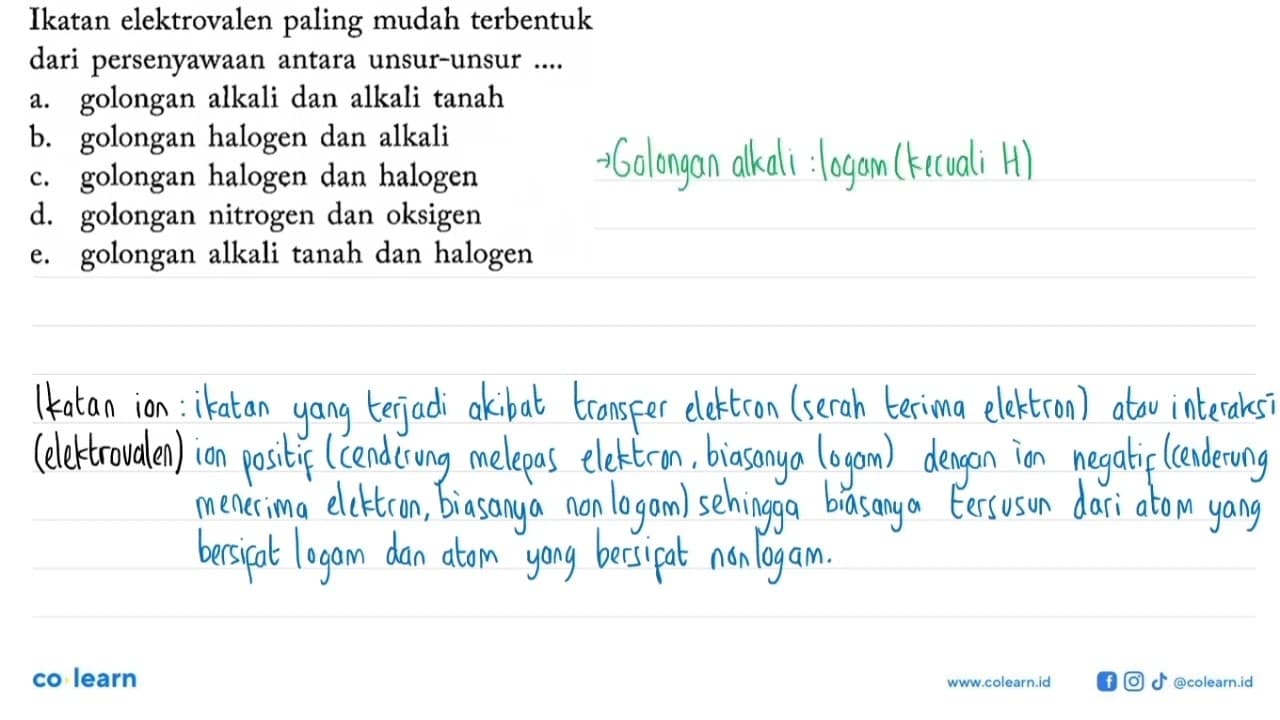 Ikatan elektrovalen paling mudah terbentuk
dari persenyawaan antara unsur-unsur ....
a. golongan alkali dan alkali tanah
b. golongan halogen dan alkali
c. golongan halogen dan halogen
d. golongan nitrogen dan oksigen
e. golongan alkali tanah dan halogen
→Golongan alkali : logam (kecuali H)
Ikatan ion : ikatan yang terjadi akibat transfer elektron (serah terima elektron) atau interaksi
(elektrovalen) ion positif (cenderung melepas elektron, biasanya logam) dengan ion negatif (cenderung
menerima elektron, biasanya non logam) sehingga biasanya tersusun dari atom yang
bersifat logam dan atom yang bersifat nonlogam.
co learn
www.colearn.id @colearn.id